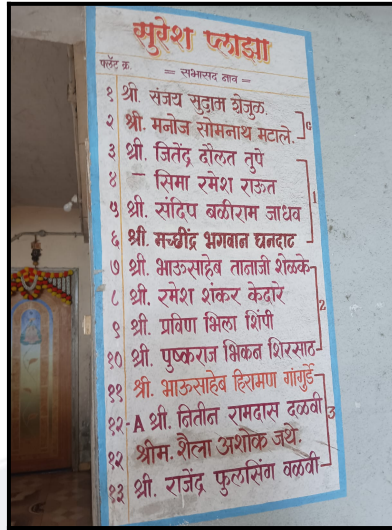 सुरेश प्लाझा
फ्लॅट क्र. = सभासद नाव =
१ श्री. संजय सुदाम शेजुळ.
२ श्री. मनोज सोमनाथ मटाले. G
३ श्री. जितेंद्र दौलत तुपे
४ — सिमा रमेश राऊत
५ श्री. संदिप बळीराम जाधव 1
६ श्री. मच्छींद्र भगवान घनदाट
७ श्री. भाऊसाहेब तानाजी शेळके
८ श्री. रमेश शंकर केदारे
९ श्री. प्रविण भिला शिंपी 2
१० श्री. पुष्कराज भिकन शिरसाठ
११ श्री. भाऊसाहेब हिरामण गांगुर्डे
१२-A श्री. नितीन रामदास दळवी 3
१२ श्रीम. शैला अशोक जथे.
१३ श्री. राजेंद्र फुलसिंग वळवी